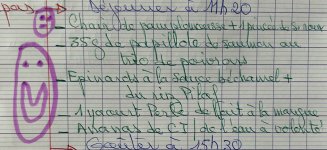 pas → Déjeuner à 11h20
- Chair de pamplemousse + 1 pincée de
- 35g de papillote de saumon au
trio de poivrons
- Epinards à la sauce béchamel +
du riz Pilaf
- 1 yaourt Perle de lait à la mangue
- Ananas de CT / de l'eau à volonté
→ Goûter à 15h30